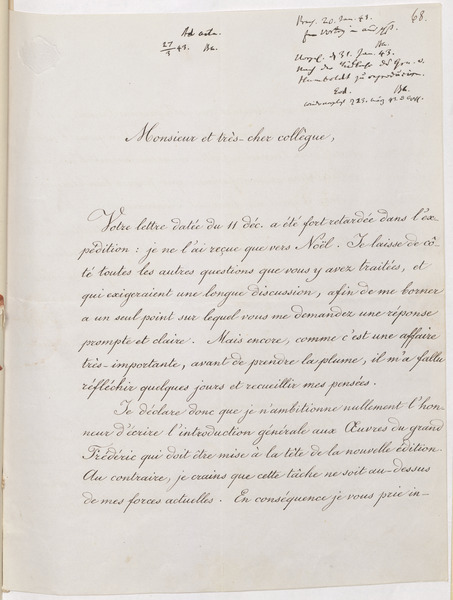 68.
Ad acta.
27/3 43. Bk.
20. Jan. 43.
Bk.
31. Jan. 43.
Humboldt zu
Bk.
Monsieur et très-cher collègue,
Votre lettre datée du 11 déc. a été fort retardée dans l'ex-
pédition : je ne l'ai reçue que vers Noël. Je laisse de cô-
té toutes les autres questions que vous y avez traitées, et
qui exigeraient une longue discussion, afin de me borner
a un seul point sur lequel vous me demandez une réponse
prompte et claire. Mais encore, comme c'est une affaire
très-importante, avant de prendre la plume, il m'a fallu
réfléchir quelques jours et recueillir mes pensées.
Je déclare donc que je n'ambitionne nullement l'hon-
neur d'écrire l'introduction générale aux Œuvres du grand
Frédéric qui doit être mise à la tête de la nouvelle édition.
Au contraire, je crains que cette tâche ne soit au-dessus
de mes forces actuelles. En conséquence je vous prie in-